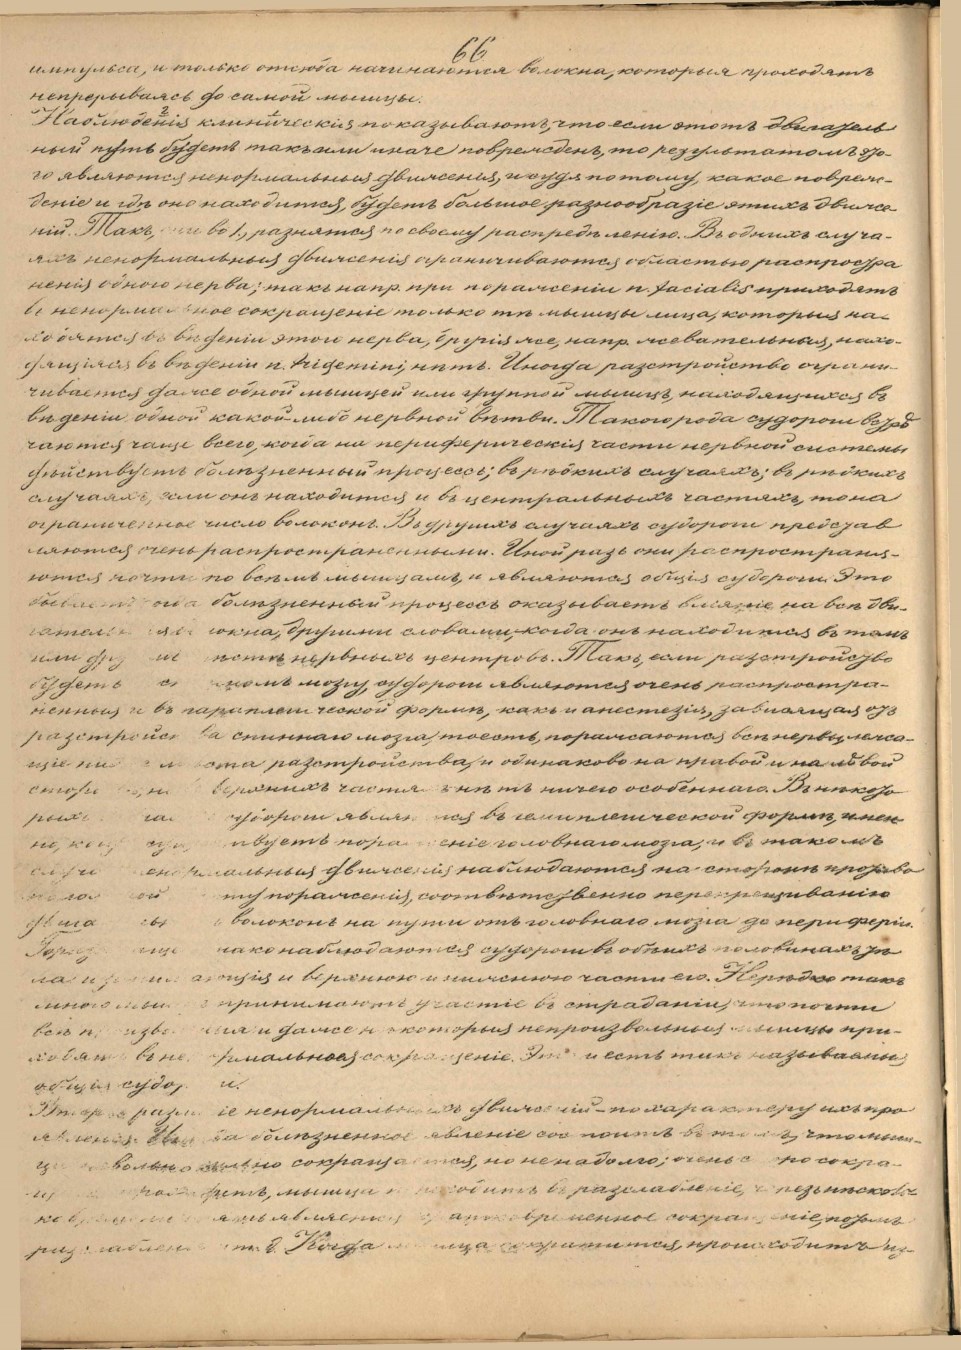 66
импульса, и только отсюда начинаются волокна, которыя проходятъ
непрерываясь до самой мышцы.
Наблюденія клиническія показываютъ, что если этотъ двигатель
ный путь будетъ такъ или иначе поврежденъ, то результатомъ это-
го являются ненормальныя движенія, и судя потому, какое повреж-
деніе и гдѣ оно находится, будетъ большое разнообразіе этихъ движе
ній. Такъ, во 1, разнятся по своему распредѣленію. Въ однихъ случа-
яхъ ненормальныя движенія ограничиваются областью распростра
ненія одного нерва; такъ напр. при пораженіи n. facialis приходятъ
въ ненормальное сокращеніе только тѣ мышцы лица, которыя на-
ходятся въ вѣденіи этого нерва, другія же, напр. жевательныя, нахо-
дящіяся въ вѣденіи n. trigemini, нѣтъ. Иногда разстройство ограни-
чивается даже одной мышцей или группой мышцъ, находящихся въ
вѣденіи одной какой-либо нервной вѣтви. Такого рода судороги встрѣ
чаются чаще всего, когда на периферическія части нервной системы
дѣйствуетъ болѣзненный процессъ; въ рѣдкихъ случаяхъ; въ рѣдкихъ
случаяхъ, если онъ находится и въ центральныхъ частяхъ, то на
ограниченное число волоконъ. Въ другихъ случаяхъ судороги представ
ляются очень распространенными. Иной разъ они распространя-
ются почти по всѣмъ мышцамъ, и являются общія судороги. Это
бываетъ когда болѣзненный процессъ оказываетъ вліяніе на всѣ дви-
гательныя волокна, другими словами, когда онъ находится въ томъ
или нервныхъ центровъ. Такъ, если разстройство
будетъ мозгу, судороги являются очень распростра-
ненныя и въ параплегической формѣ, какъ и анестезія, зависящая отъ
разстройства спиннаго мозга, тоесть, поражаются всѣ нервы, лежа-
щіе ниже мѣста разстройства, и одинаково на правой и на лѣвой
сторонѣ, верхнихъ частяхъ нѣтъ ничего особеннаго. Въ нѣкото
рыхъ судороги являются въ гемиплегической формѣ, имен
но, когда пораженіе головнаго мозга, и въ такомъ
случаѣ ненормальныя движенія наблюдаются на сторонѣ противо
положной мѣсту пораженія, соотвѣтственно перекрещиванію
волоконъ на пути отъ головнаго мозга до периферіи.
наблюдаются судороги въ обѣихъ половинахъ тѣ
ла и верхнюю и нижнюю части его. Нерѣдко такъ
много мышцъ принимаютъ участіе въ страданіи, что почти
всѣ произвольныя и даже нѣкоторыя непроизвольныя мышцы при-
ходятъ въ ненормальное сокращеніе. Это и есть такъ называемыя
общія судороги.
Второе различіе ненормальныхъ движеній – по характеру ихъ про
явленія. болѣзненное явленіе состоитъ въ томъ, что мыш-
ца сокращается, но ненадолго; очень сокра-
мышца приходитъ въ разслабленіе, черезъ нѣсколь
ко является кратковременное сокращеніе, потомъ
разслабленіе и т.д. Когда мышца сократится, происходитъ из-